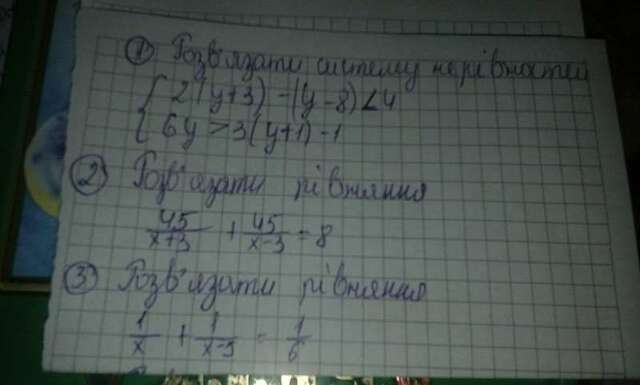 ① Розв'язати систему нерівностей
{ 2(y+3) -(y-8)<4
6y>3(y+1)-1
② Розв'язати рівняння
45/(x+3) + 45/(x-3) = 8
③ Розв'язати рівняння
1/x + 1/(x-3) = 1/6